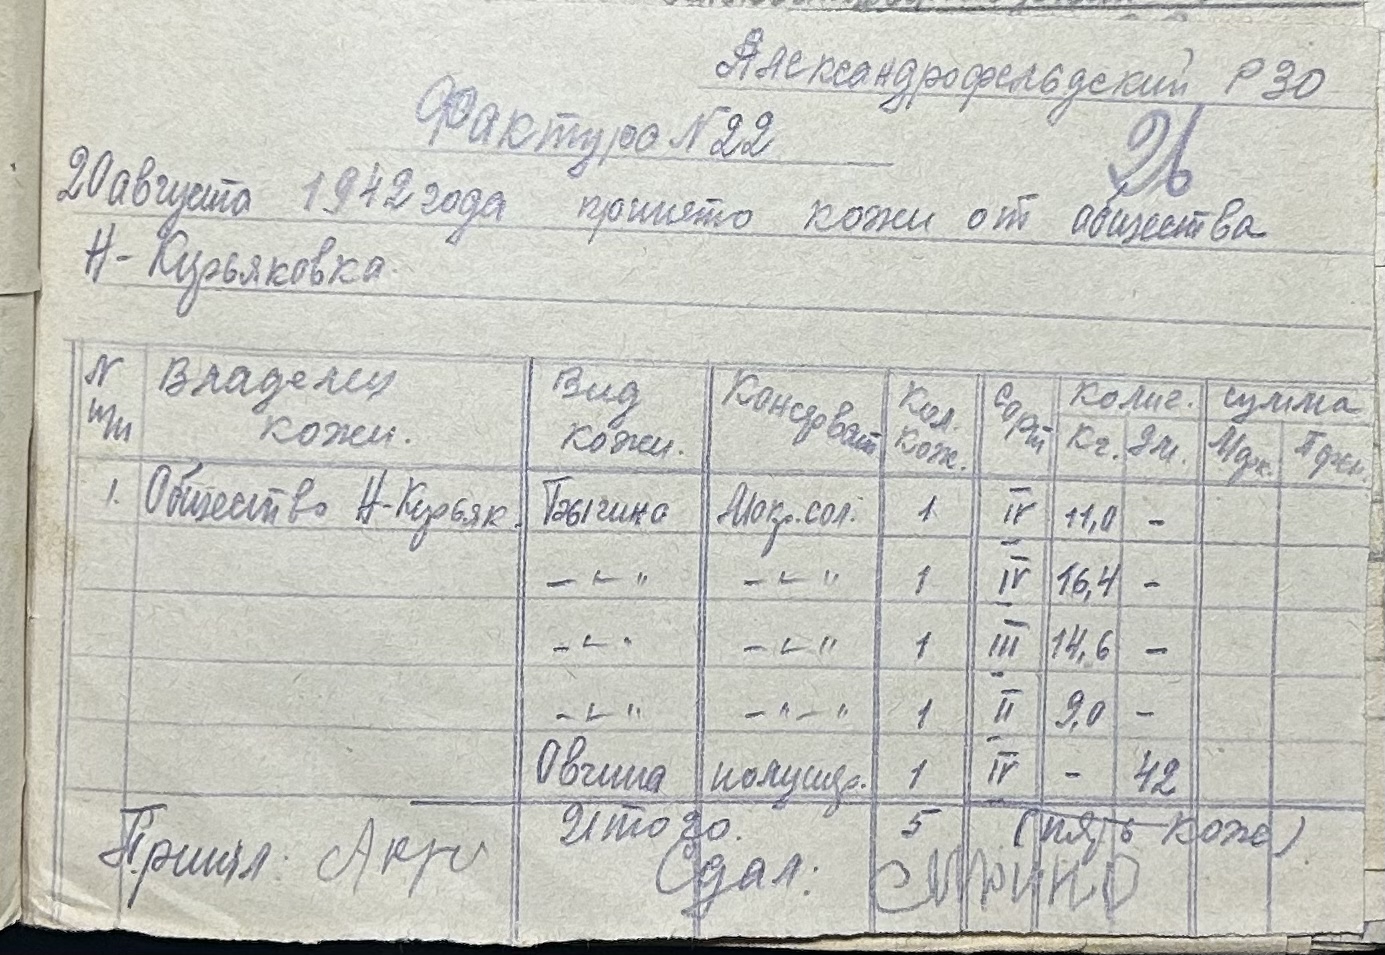 Александрофельдский РЗО
Фактура N 22
26
20 августа 1942 года принято кожи от общества
Н-Курьяковка.
N п/п Владелец кожи. Вид кожи. Консерват Кол. кож. сорт колич. Кг. Дм. сумма
1. Общество Н-Курьяк. Бычина Мокр. сол. 1 IV 11,0 -
-"-" -"-" 1 IV 16,4 -
-"-" -"-" 1 III 14,6 -
-"-" -"-" 1 II 9,0 -
Овчина 1 IV - 42
Итого. 5 (пять кож)
Принял: Сдал: